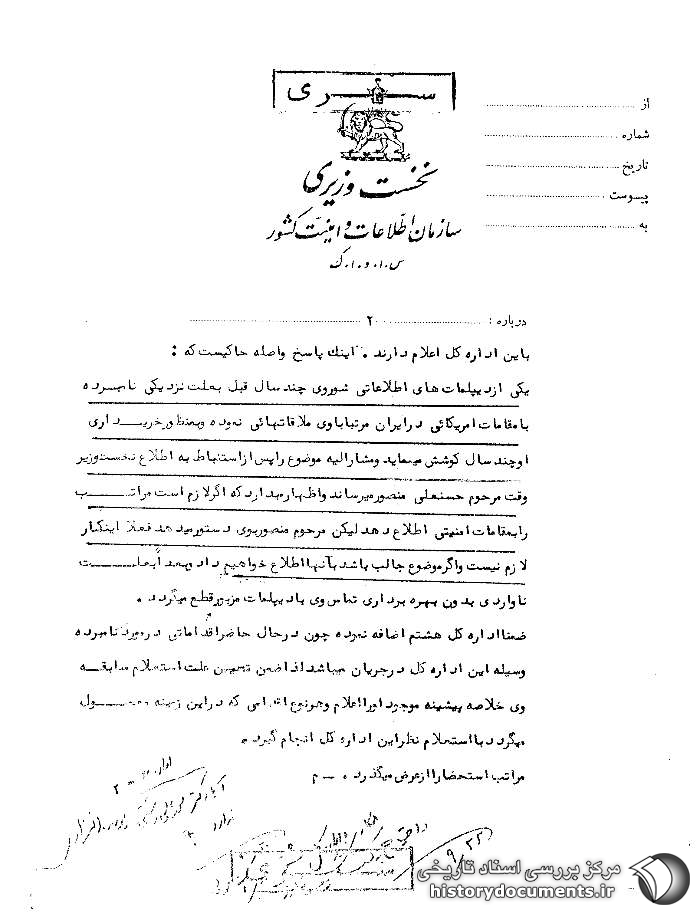 سری
نخست وزیری
سازمان اطلاعات و امنیت کشور
س.ا.و.ا.ک
از
شماره
تاریخ
پیوست
به
درباره : ۲
باین اداره کل اعلام دارند . اینك پاسخ واصله حاکیست که :
یکی از دیپلمات های اطلاعاتی شوروی چند سال قبل بعلت نزدیکی نامبرده
با مقامات امریکائی در ایران مرتبا با وی ملاقاتهائی نموده وبمنظور خریداری
او چند سال کوشش مینماید ومشارالیه موضوع را پس از استنباط به اطلاع نخست وزیر
وقت مرحوم حسنعلی منصور میرساند واظهار میدارد که اگر لازم است مراتب
را بمقامات امنیتی اطلاع دهد لیکن مرحوم منصور بوی دستور میدهد فعلا اینکار
لازم نیست واگر موضوع جالب باشد بآنها اطلاع خواهیم داد وبعداً بعلت
ناواردی بدون بهره برداری تماس وی با دیپلمات مزبور قطع میگردد .
ضمنا اداره کل هشتم اضافه نموده چون در حال حاضر اقداماتی در مورد نامبرده
وسیله این اداره کل در جریان میباشد لذا ضمن تعیین علت استعلام سابقه
وی خلاصه پیشینه موجود اورا اعلام وهرنوع اقدامی که در این زمینه معمول
میگردد با استعلام نظر این اداره کل انجام گیرد .
مراتب استحضارا از عرض میگذرد . م
۹/۲۲
مرکز بررسی اسناد تاریخی
historydocuments.ir